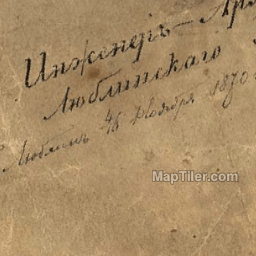 Инженеръ-Ар
Люблинскаго
Люблинъ 18 Ноября 1870
MapTiler.com